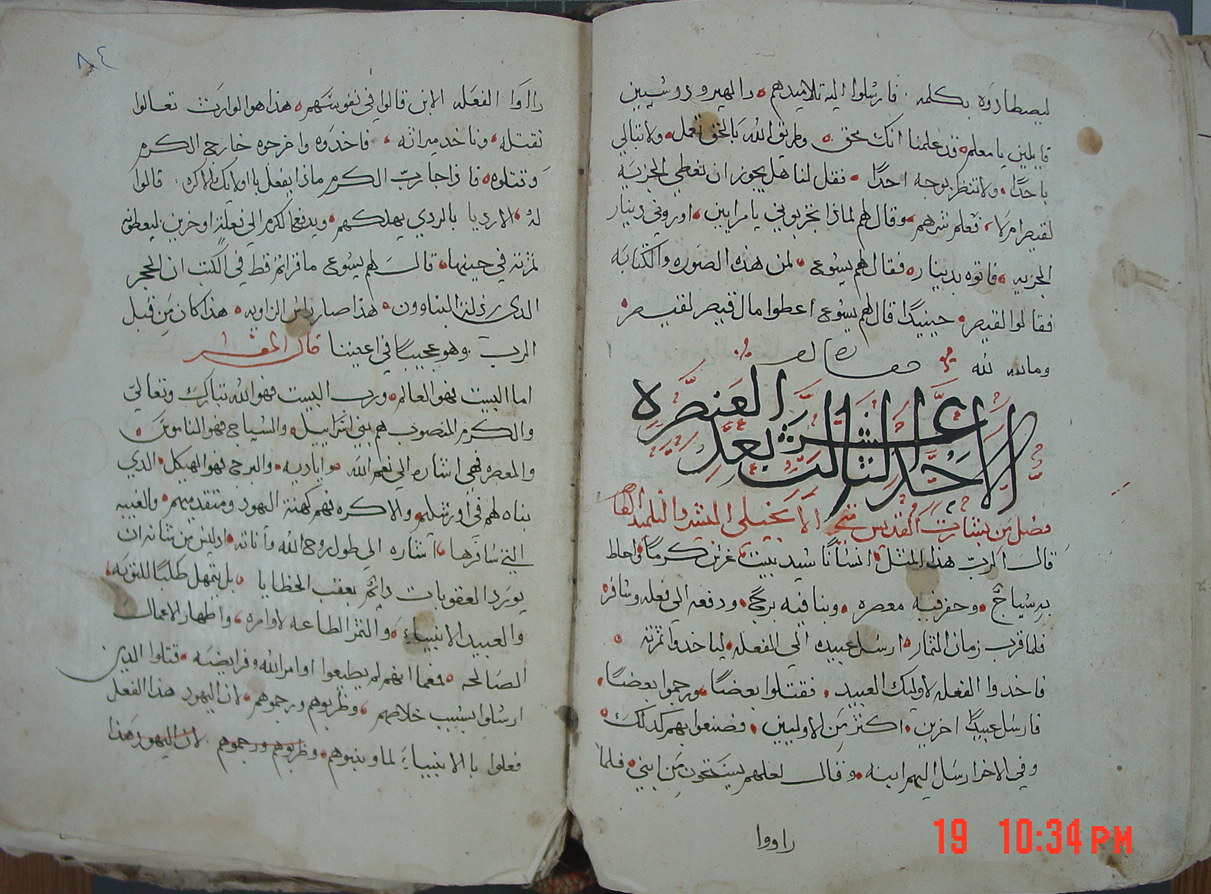 ليصطادوه بكلمه. فارسلوا اليه تلاميدهم والهيرودوسيين
قايلين يا معلم قد علمنا انك محق وطريق الله بالحق تعمل ولا تبالي
باحدًا ولا تنظر بوجه احدًا فقل لنا هل يجوز ان تعطي الجزيه
لقيصر ام لا فعلم شرهم وقال لهم لماذا تجربوني يا مرايين اوروني دينار
الجزيه فاتوه بدينار فقال لهم يسوع لمن هذه الصوره والكتابه
فقالوا لقيصر حينيدًا قال لهم يسوع اعطوا مال قيصر لقيصر
وما لله لله
الاحد الثالث عشر بعد العنصره
فصل من بشارت القديس متى الانجيلي المبشر والتلميد
قال الرب هذا المثل انسانًا سيد بيت غرس كرمًا واحاط
به سياجٌ وحفر فيه معصره وبنا فيه برجٌ ودفعه الى فعله وسافر
فلما قرب زمان الثمار ارسل عبيده الي الفعله لياخدوا ثمرته
فاخدوا الفعله لاوليك العبيد فقتلوا بعضًا ورجموا بعضًا
فارسل عبيدًا اخرين اكثر من الاوليين فصنعوا بهم كدلك
وفي الاخر ارسل اليهم ابنه وقال لعلهم يستحون من ابني فلما
راووا
٨٤
راوا الفعله الابن قالوا في نفوسهم هذا هو الوارت تعالوا
نقتله وناخد ميراته فاخدوه واخرجوه خارج الكرم
وقتلوه فاذا جا رب الكرم مادا يفعل باوليك الاكره قالوا
له الارديا بالردي يهلكهم ويدفع الكرم الي فعلةٍ اوخرين ليعطوه
ثمرته في حينها قال لهم يسوع ما قراتم قط في الكتب ان الحجر
الذي رذله البناوون هذا صار راس الزاويه هذا كان من قبل
الرب وهو عجيبًا في اعيننا قال المفسر
اما البيت فهو العالم ورب البيت فهو الله تبارك وتعالي
والكرم المنصوب هم بني اسراييل والسياج فهو الناموس
والمعصره فهي اشاره الي نعم الله واياديه والبرج فهو الهيكل الدي
بناه لهم في اورشليم والاكره فهم كهنة اليهود ومتقدميهم والغيبه
التي سافرها اشاره الي طول روح الله واناته اد ليس من شانه ان
يورد العقوبات دايمٌ بعقب الخطايا بل يتمهل طلبًا للتوبه
والعبيد الانبياء والثمر الطاعه لاوامره واظهار الاعمال
الصالحه فمع ما انهم لم يطيعوا اوامر الله وفرايضه قتلوا الدين
ارسلوا بسبب خلاصهم وظربوهم ورجموهم لان اليهود هذا الفعل
فعلوا بالانبياء لما ونبوهم وظربوهم ورجموهم لان اليهود هذا